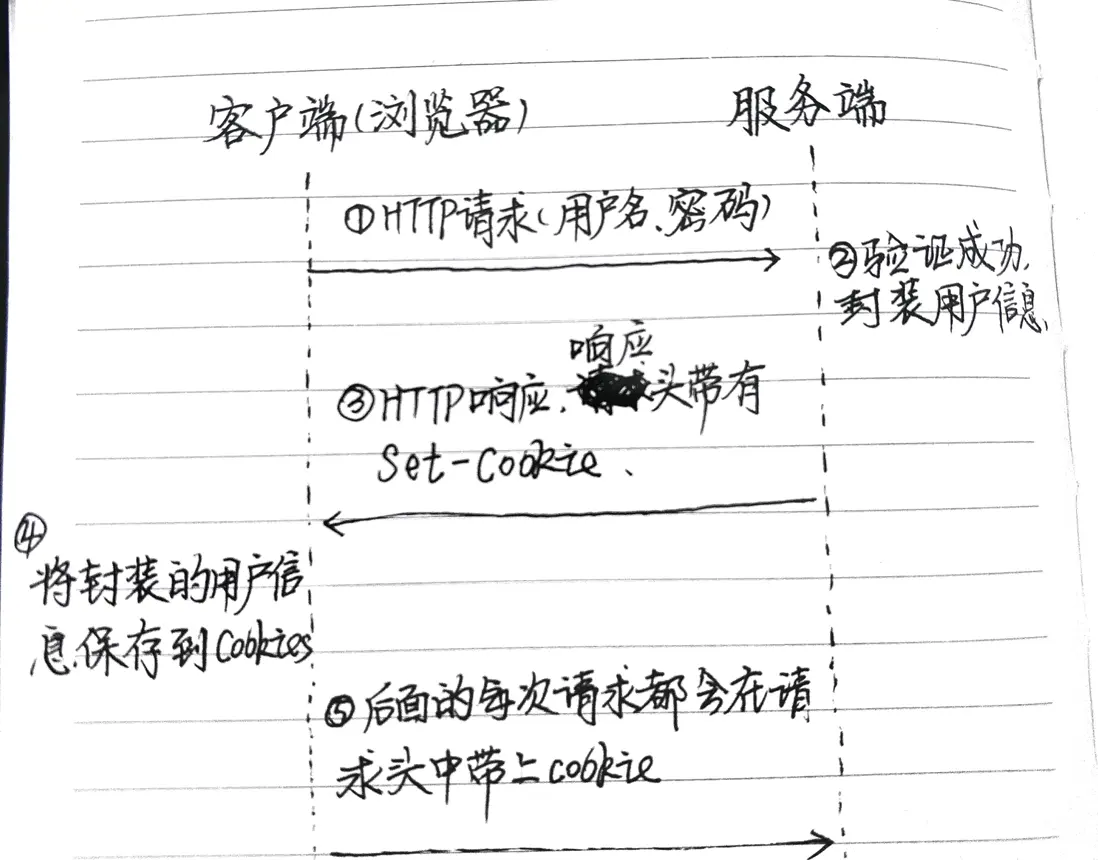 客户端(浏览器)
服务端
①HTTP请求(用户名、密码)
②验证成功,
封装用户信息,
响应
③HTTP响应,头带有
Set-Cookie、
④
将封装的用户信
息保存到Cookies
⑤后面的每次请求都会在请
求头中带上cookie